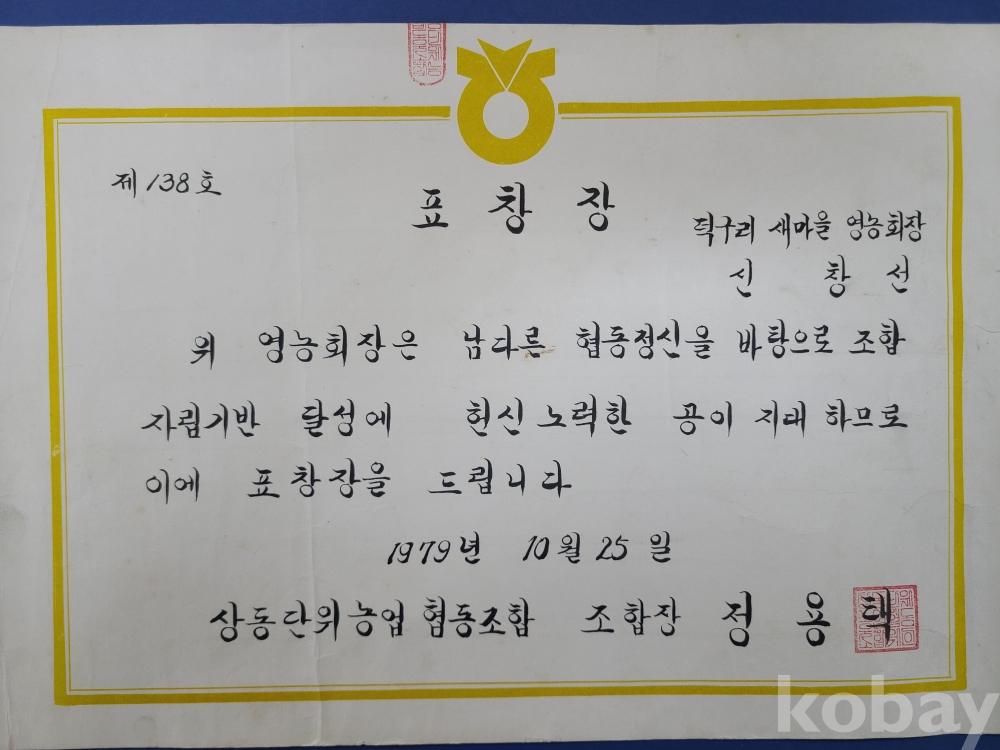 제 138호
표 창 장
덕구리 새마을 영농회장
신 창 선
위 영농회장은 남다른 협동정신을 바탕으로 조합
자립기반 달성에 헌신 노력한 공이 지대 하므로
이에 표창장을 드립니다
1979년 10월 25일
상동단위농업협동조합 조합장 정 용 택
kobay